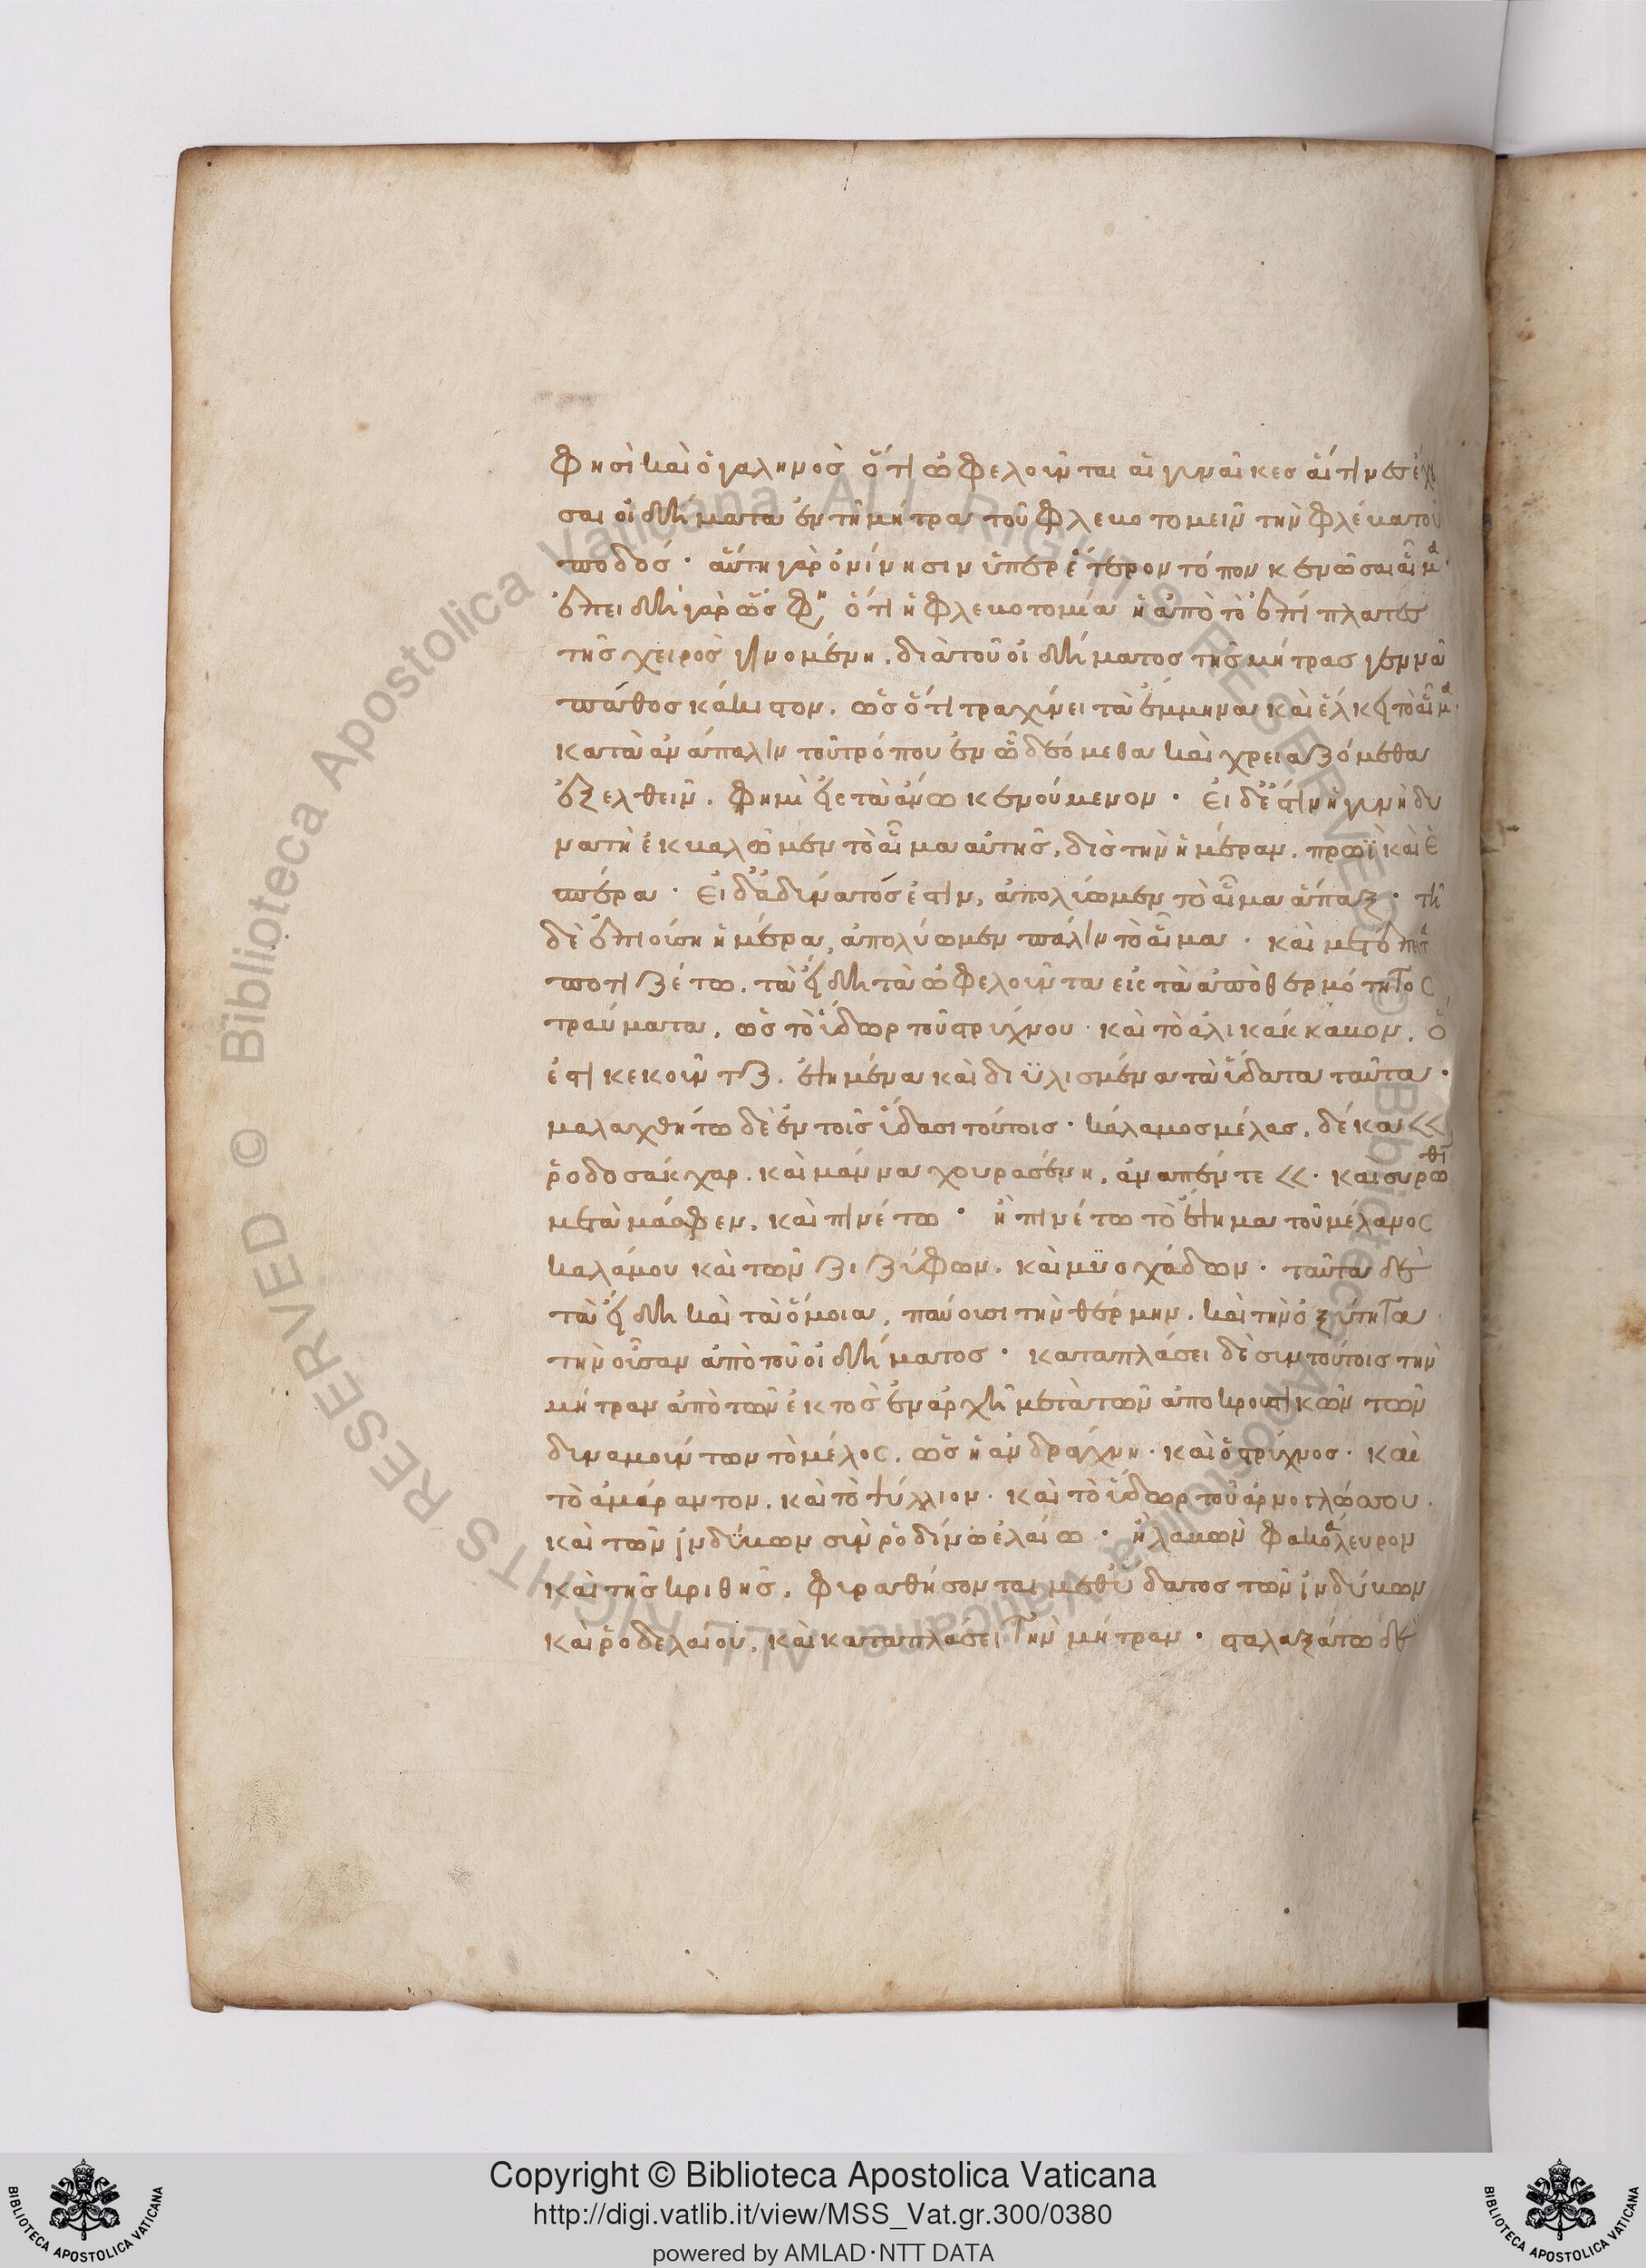 φησὶ καὶ ὁ γαληνοσ ὅτι ὠφελοῦνται αἱ γυναῖκεσ αἵτιν ες ἔχου
σαι οἰδήματα ἐν τῇ μήτρα τοῦ φλεβοτομεῖν τὴν φλέβα τοῦ
ποδόσ · αὕτη γὰρ ὀνίνησιν ὑπὲρ ἕτερον τόπον κενῶσαι αἷμα ·
ἐπειδὴ γὰρ ὥσ φη ὅτι ἡ φλεβοτομία ἡ ἀπὸ τὸ ἐπὶ πλατες
τῆσ χειρὸσ γινομένη . διὰ τοῦ οἰδήματοσ τῆσ μήτρασ γεννᾶ
πάθοσ κάκιστον . ὡσ ὅτι τραχύνει τὰ ἔμμηνα καὶ ἕλκει τὸ αἷμα ·
κατὰ ἀνάπαλιν τοῦ τρόπου ἐν ὧ δεόμεθα καὶ χρειαζόμεθα
ἐξελθεῖν . φημὶ εἰς τὰ ἄνω κενούμενον · Εἰ δέ ἐστιν ἡ γυνὴ δυ
νατὴ ἐκβαλῶμεν τὸ αἷμα αὐτῆσ, δὶσ τὴν ἡμέραν . πρωῒ καὶ ἑ
σπέρα · Εἰ δ' ἀδύνατόσ ἐστιν, ἀπολύωμεν τὸ αἷμα ἅπαξ · τῇ
δὲ ἐπιούση ἡμέρα, ἀπολύωμεν πάλιν τὸ αἷμα · καὶ μετέπειτα
ποτιζέτω . τὰ εἴδη τὰ ὠφελοῦντα εἰς τὰ ἀπὸ θερμότητος
τραύματα, ὡσ τὸ ὕδωρ τοῦ στρύχνου · καὶ τὸ ἀλικάκκαβον . ὅ
ἐστι κεκοῦντζ . ἑψημένα καὶ διϋλισμένα τὰ ὕδατα ταῦτα ·
μαλαχθήτω δὲ ἐν τοῖσ ὕδασι τούτοισ · κάλαμοσ μέλασ, δέκα <<
ῥοδοσάκχαρ . καὶ μάννα χουρασένη, ἀνα πέντε << · και συρωθῆ
μετὰ μάσφεν, καὶ πινέτω · ἢ πινέτω τὸ ἕψημα τοῦ μέλανος
καλάμου καὶ τῶν ζιζύφων . καὶ μϋοχάδων · ταῦτα δὲ
τὰ εἴδη καὶ τὰ ὅμοια, παύουσι τὴν θέρμην . καὶ τὴν ὀξύτητα
τὴν οὖσαν ἀπὸ τοῦ οἰδήματοσ · καταπλάσει δὲ σὺν τούτοισ τὴν
μήτραν ἀπὸ τῶν ἐκτὸσ ἐν ἀρχῇ μετὰ τῶν ἀποκρουστικῶν τῶν
δυναμούντων τὸ μέλος . ὡσ ἡ ἀνδράχνη · καὶ ὁ στρύχνοσ · καὶ
τὸ ἀμάραντον . καὶ τὸ ψύλλιον · καὶ τὸ ὕδωρ τοῦ ἀρνογλώσσου .
καὶ τῶν ἰνδύβων σὺν ῥοδίνω ἐλαίω · ἢ λαβὼν φακοάλευρον
καὶ τῆσ κριθῆσ, φυραθήσονται μεθ' ὕδατοσ τῶν ἰνδύβων
καὶ ῥοδελαίου, καὶ καταπλάσει τὴν μήτραν · σταλαξάτω δὲ
Copyright © Biblioteca Apostolica Vaticana
http://digi.vatlib.it/view/MSS_Vat.gr.300/0380
powered by AMLAD·NTT DATA